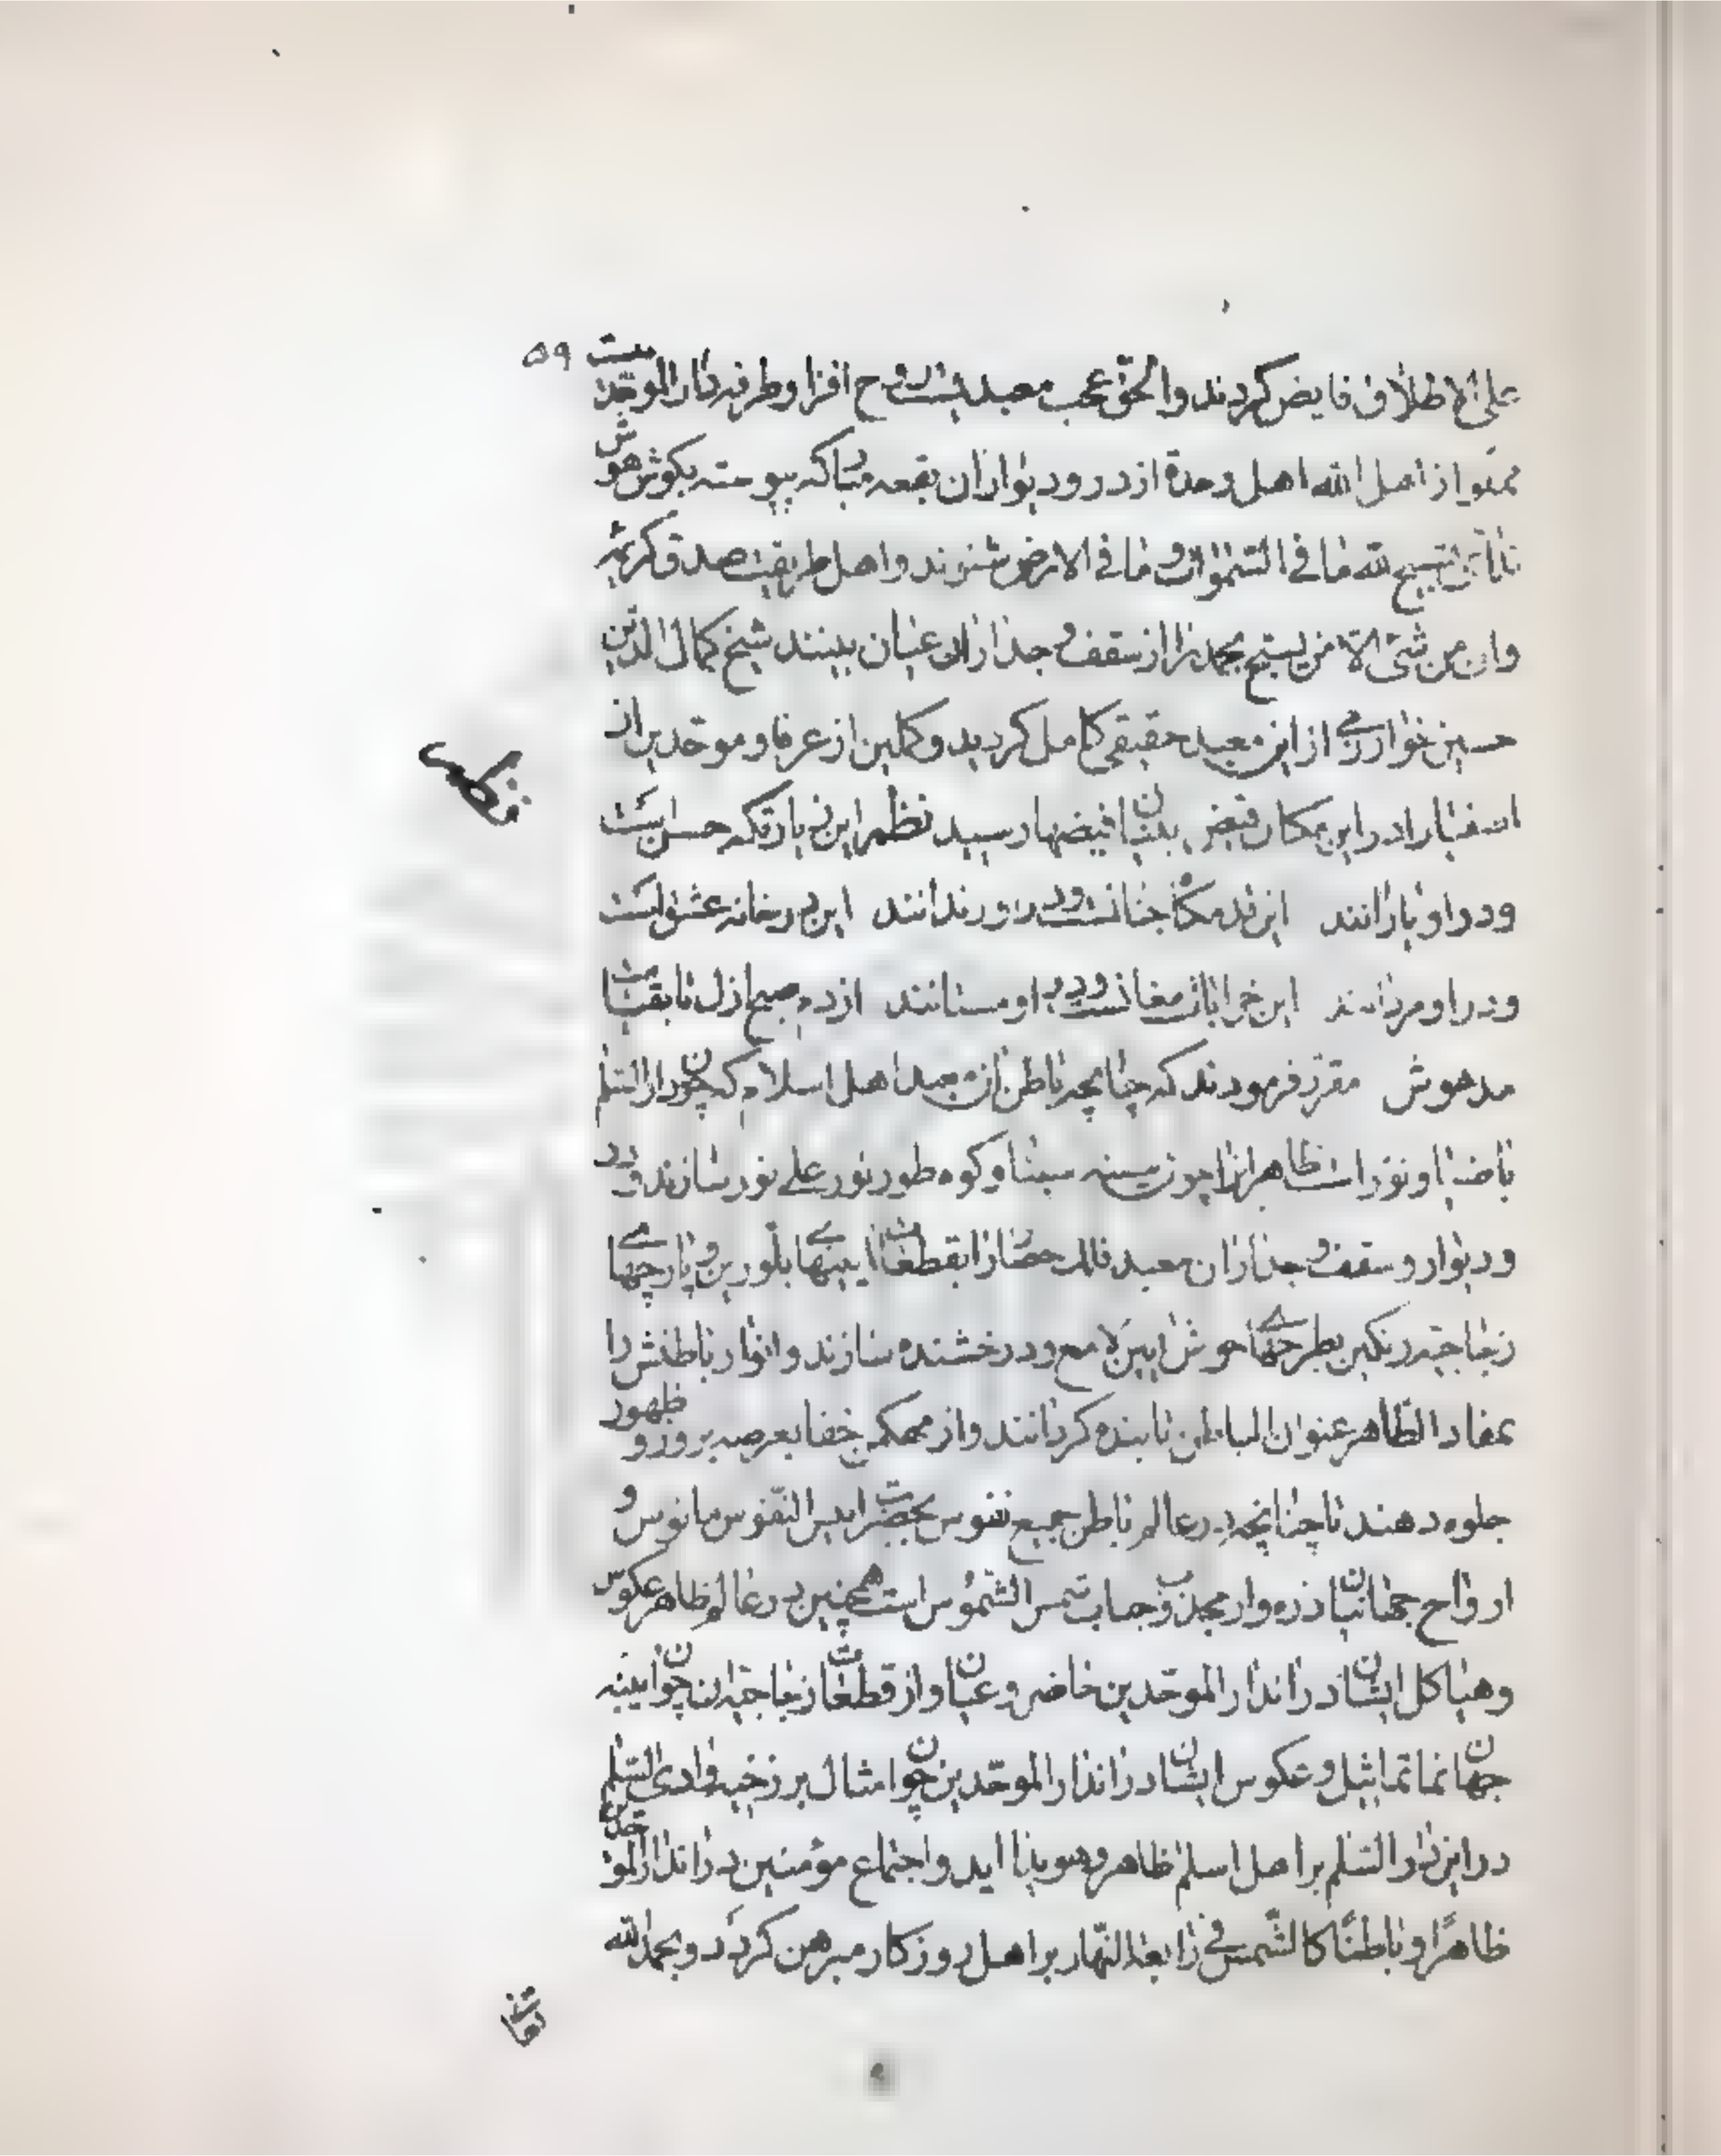 ۵۹
على الاطلاق فايض كردند والحق عجب معبديست روح افزا وطرفه دار الموحدينيست
مملو از اهل الله اهل وحدة از در و ديوار ان بقعه مباركه پيوسته بكوش هوش
تسبيح لله ما فى السموات وما فى الارض شنوند واهل طريقت صدق كريمه
وان من شئ الا من يسبح بحمده را از سقف و جدار ان عيان بينند شيخ كمال الدين
حسين خوارزمى از اين معبد حقيقى كامل كرديد و كملين از عرفا و موحدين از
در اين مكان فيض بنيان فيضها رسيد نظم اين نه باركه حسن است
ودر او يارانند اين نه مكان جنانست ودر او رندانند اين نه رخانه عشق است
ودر او مردانند اين خرابات مغانست ودر او مستانند از دم صبح ازل تا بقيامت
مدهوش مقرر فرمودند كه چنانچه باطن ان معبد اهل اسلام كه چون دار السلم
با ضيا و نور است ظاهر انرا چون سينه سينا و كوه طور نور على نور سازند و در
و ديوار و سقف و جدار ان معبد فلك حصار را بقطعات ايينهاى بلورين و پارچهاى
زجاجيه رنكين بطرحهاى خوش ايين لامع و درخشنده سازند و انوار باطنش را
بمفاد الظاهر عنوان الباطن تابنده كردانند و از مهمكه خفا بعرصه بروز و ظهور
جلوه دهند تا چنانچه در عالم باطن جميع نفوس بحضرت انيس النفوس مانوس و
ارواح جهانيان ذره وار مجذوب جناب شمس الشموس است همچنين در عالم ظاهر عكوس
وهياكل ايشان در اندار الموحدين حاضر و عيان و از قطعات زجاجيه ان چون ايينه
جهان نما تماثيل و عكوس ايشان در اندار الموحدين چون امثال برزخيه وادى السلم
در اين دار السلم بر اهل اسلم ظاهر و هويدا ايد و اجتماع مؤمنين در اندار الموحدين
ظاهرًا و باطنًا كالشمس فى رابعة النهار بر اهل روزكار مبرهن كردد و بحمد الله